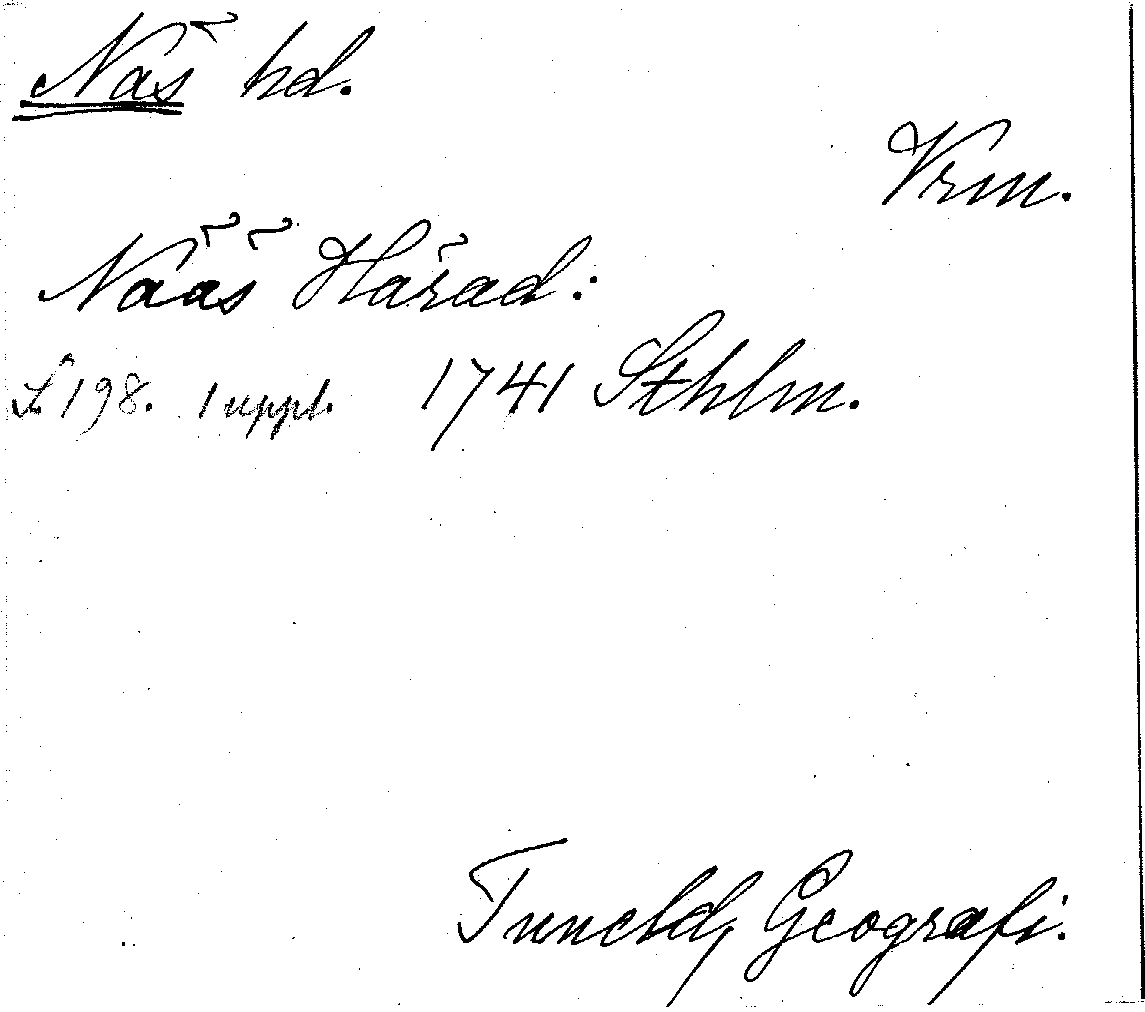 Näs hd.
Vrm.
Nääs Härad:
S. 198. 1 uppl. 1741 Sthlm.
Tuneld, Geografi.